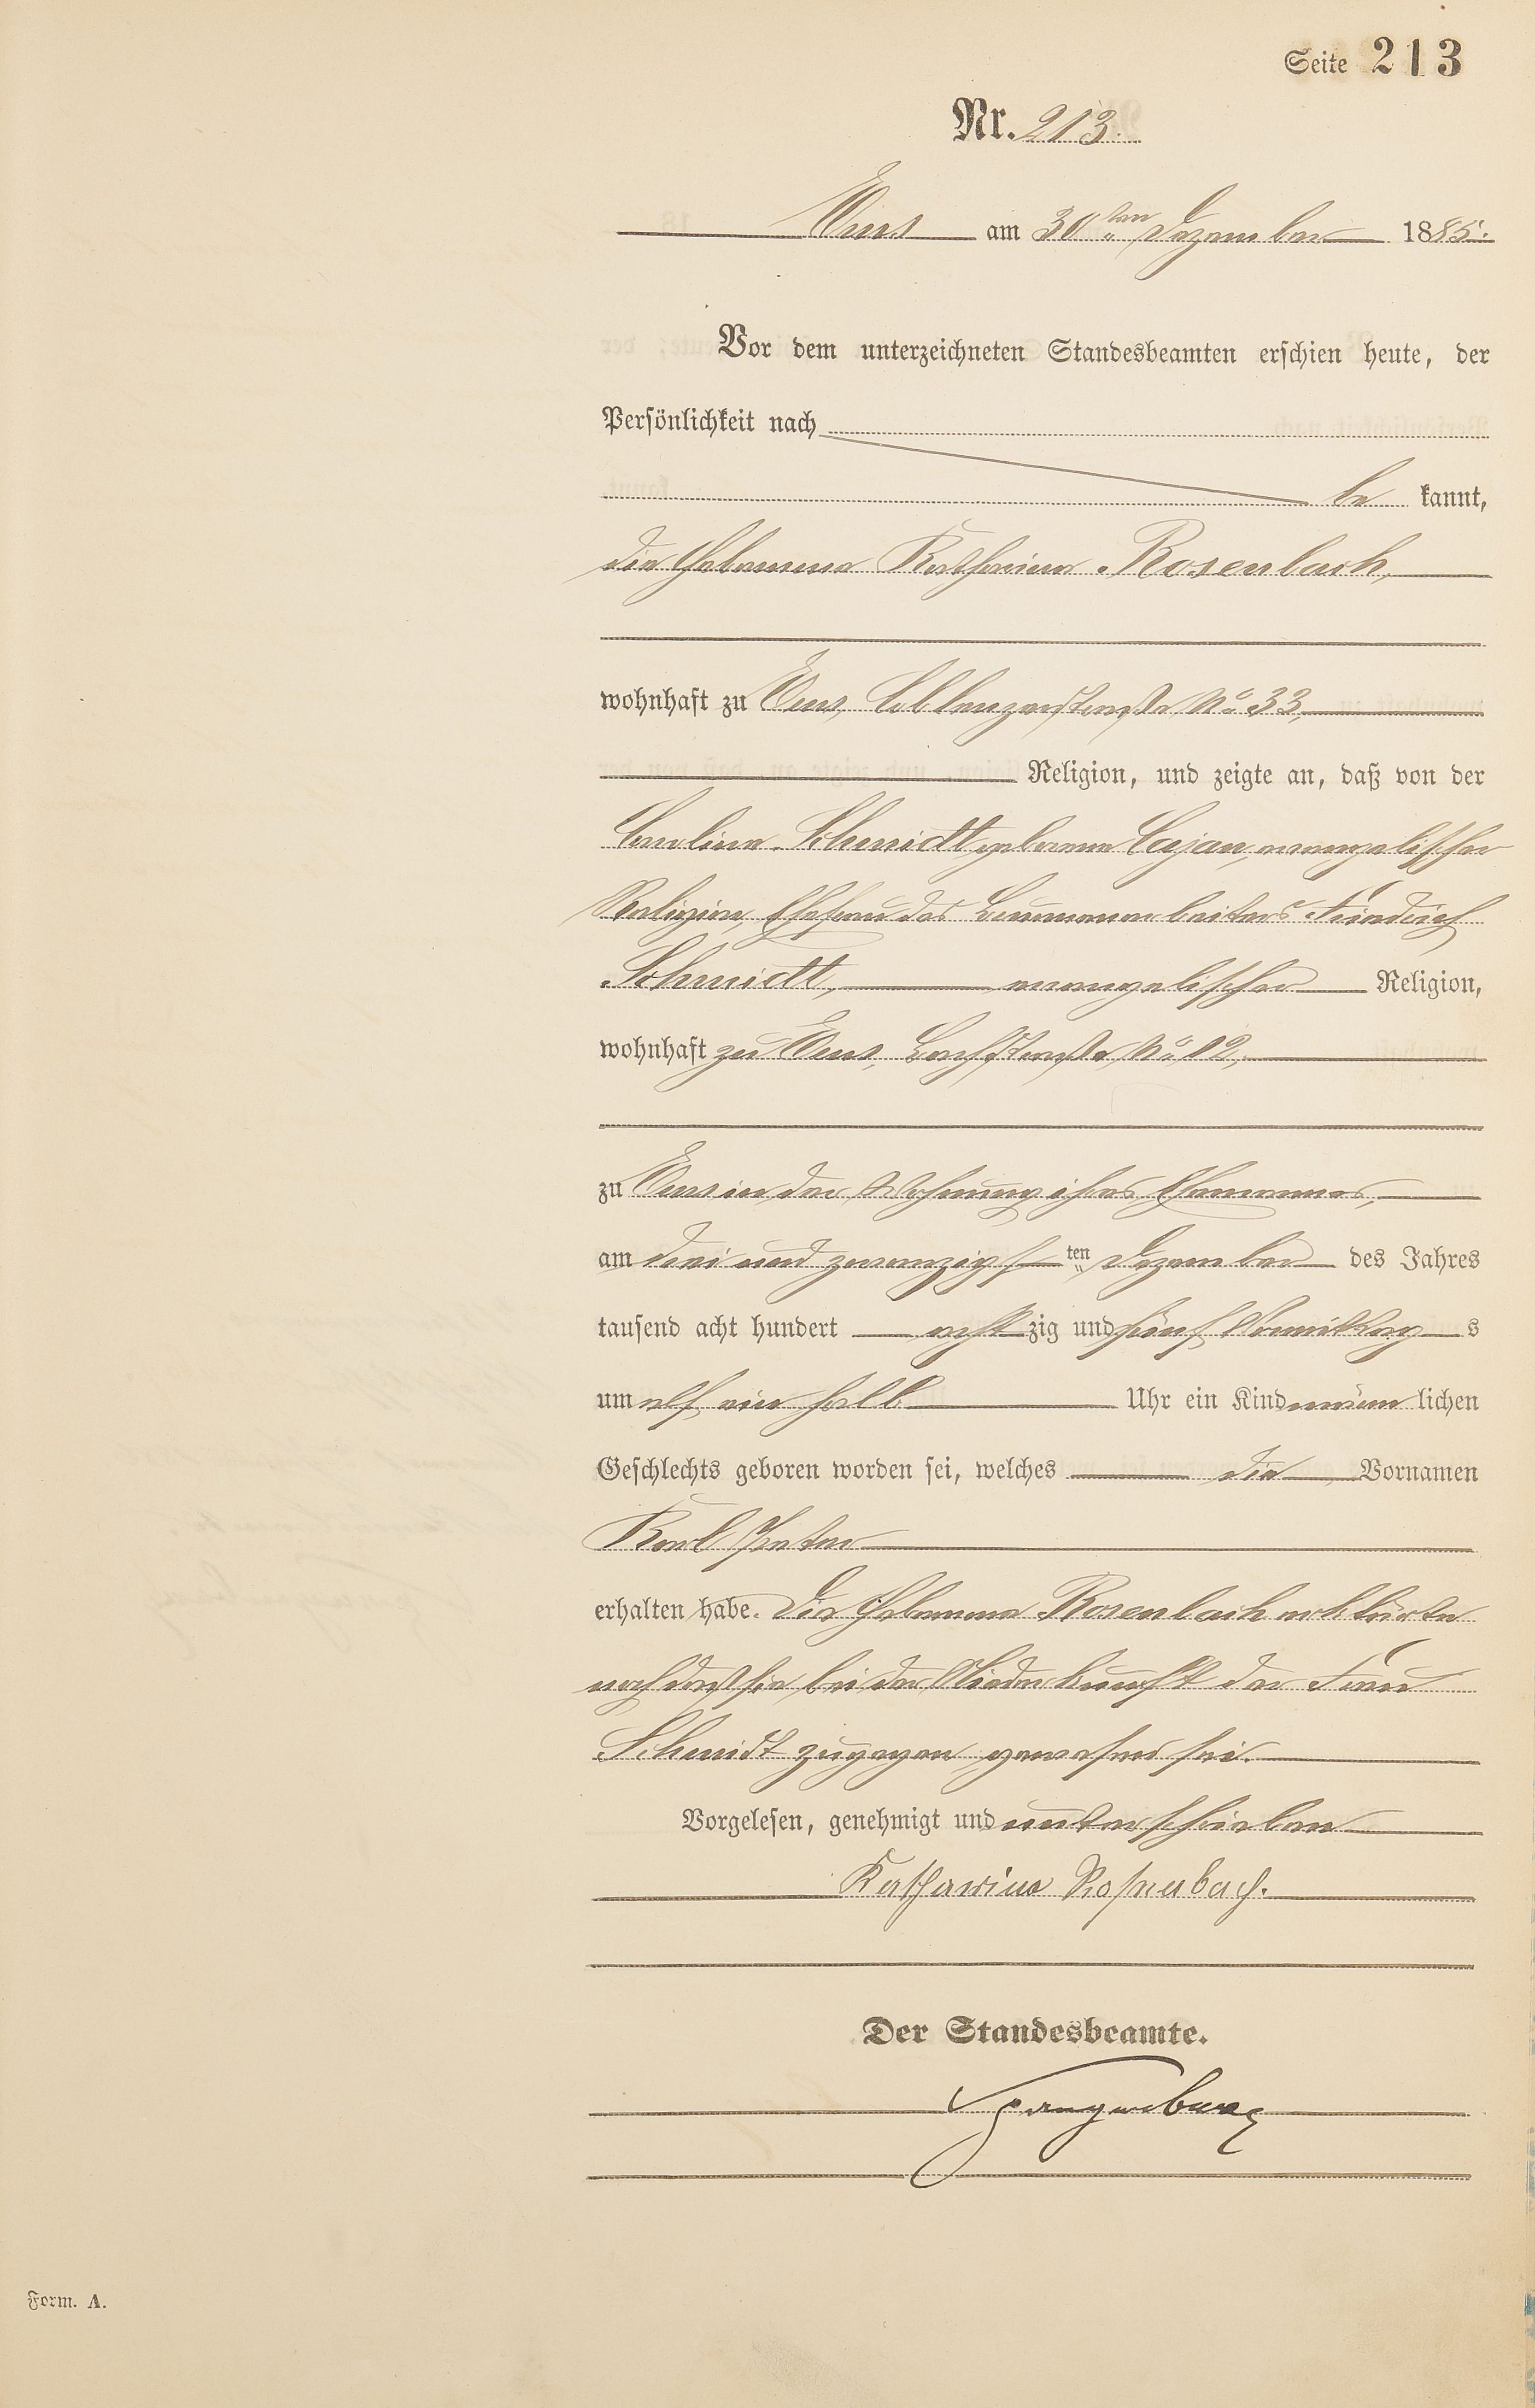 Seite 213
Nr. 213.
Ems am 30ten Dezember 1885.
Vor dem unterzeichneten Standesbeamten erschien heute, der
Persönlichkeit nach
be kannt,
die Hebamme Katharina Rosenbach,
wohnhaft zu Ems, Coblenzerstraße No 33,
Religion, und zeigte an, daß von der
Carline Schmidt geborene Cajan, evangelischer
Religion, Ehefrau des Brunnenarbeiters Friedrich
Schmidt, evangelischer Religion,
wohnhaft zu Ems, Bachstraße No 12,
zu Ems in der Wohnung ihres Ehemannes,
am drei und zwanzigsten Dezember des Jahres
tausend acht hundert achtzig und fünf Vormittags
um elf ein halb Uhr ein Kind männlichen
Geschlechts geboren worden sei, welches die Vornamen
Karl Peter
erhalten habe. Die Hebamme Rosenbach erklärte
noch daß sie bei der Niederkunft der Frau
Schmidt zugegen gewesen sei.
Vorgelesen, genehmigt und unterschrieben
Katharina Rosenbach.
Der Standesbeamte.
Spangenberg
Form. A.